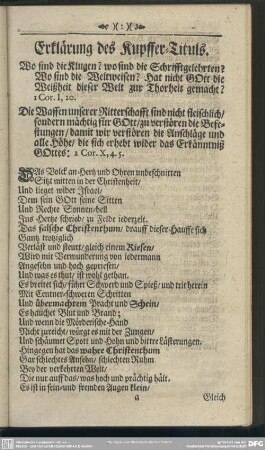 ·)o( 2 )o(·
Erklärung des Kupffer-Tituls.
Wo sind die Klugen? wo sind die Schrifftgelehrten?
Wo sind die Weltweisen? Hat nicht GOtt die
Weißheit dieser Welt zur Thorheit gemacht?
1 Cor. I, 20.
Die Waffen unserer Ritterschafft sind nicht fleischlich/
sondern mächtig für GOtt/ zu verstören die Befe-
stungen/ damit wir verstören die Anschläge und
alle Höhe/ die sich erhebt wider das Erkänntniß
GOttes: 2 Cor. X, 4. 5.
DAs Volck an Hertz und Ohren unbeschnitten
Sitzt mitten in der Christenheit/
Und lieget wider Israel/
Dem sein GOtt seine Sitten
Und Rechte Sonnen-hell
Ins Hertze schrieb/ zu Felde iederzeit.
Das falsche Christenthum/ drauff dieser Hauffe sich
Gantz trotziglich
Verläst und steurt/ gleich einem Riesen/
Wird mit Verwunderung von iedermann
Angesehn und hoch gepriesen/
Und was es thut/ ist wohl gethan.
Es breitet sich/ führt Schwerd und Spieß/ und trit herein
Mit Centner-schweren Schritten
Und übermachtem Pracht und Schein/
Es hauchet Blut und Brand;
Und wenn die Mörderische-Hand
Nicht zureicht/ würgt es mit der Zungen/
Und schäumet Spott und Hohn und bittre Lästerungen.
Hingegen hat das wahre Christenthum
Gar schlechtes Ansehn/ schlechten Ruhm
Bey der verkehrten Welt/
Die nur auff das/ was hoch und prächtig hält.
Es ist in sein- und fremden Augen klein/
a
Gleich